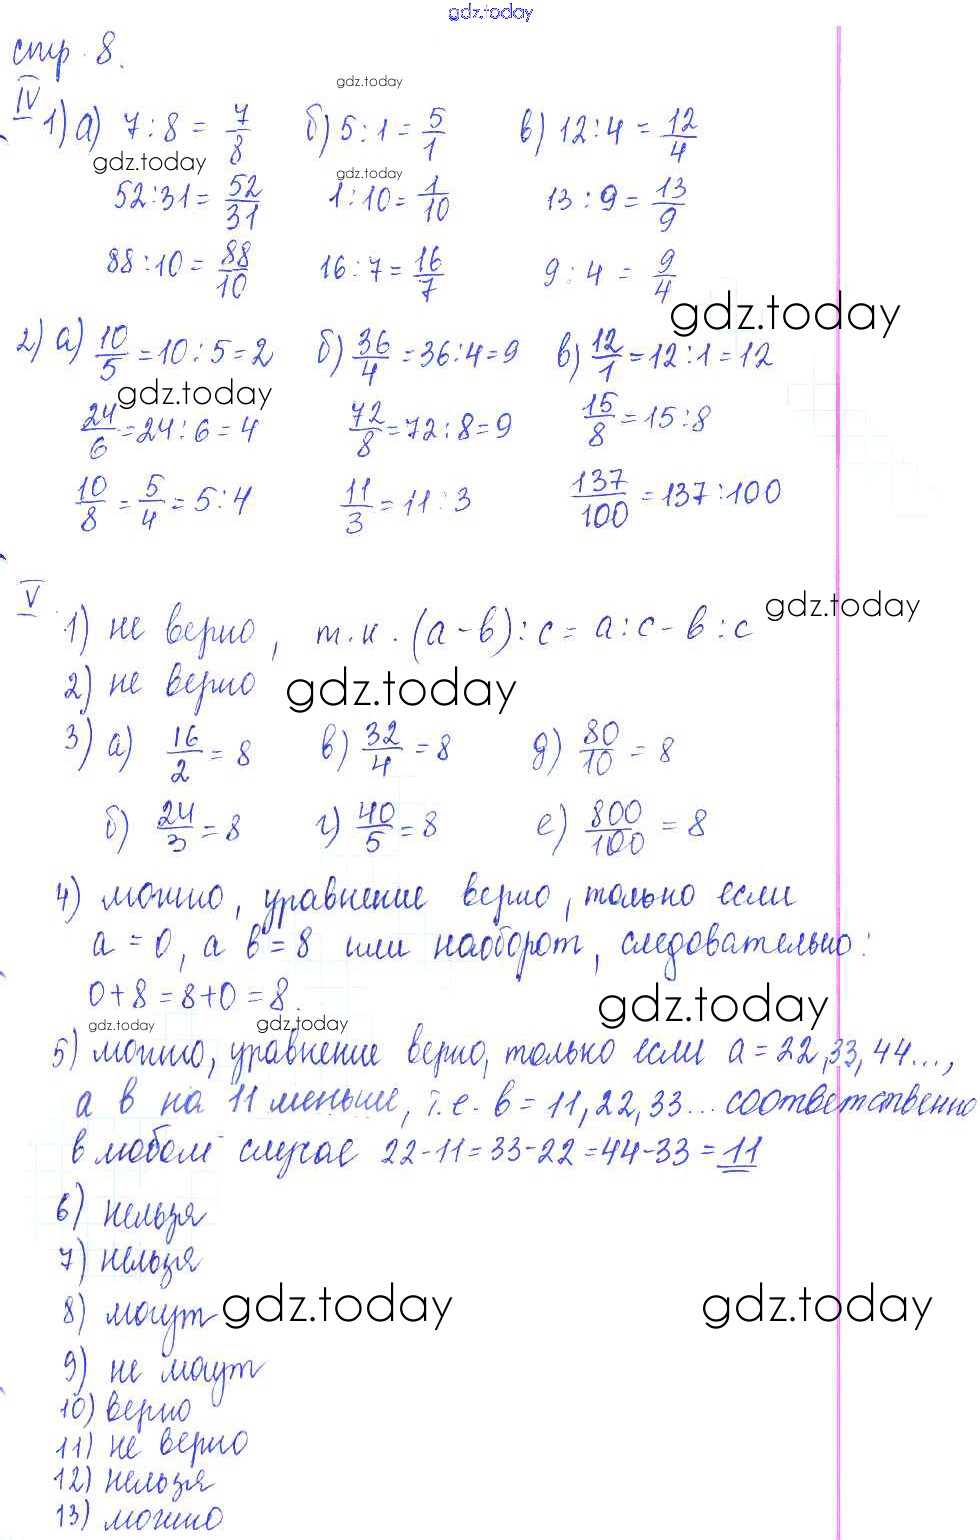 gdz.today
стр. 8.
gdz.today
IV 1) а) 7 : 8 = 7/8 б) 5 : 1 = 5/1 в) 12 : 4 = 12/4
gdz.today gdz.today
52 : 31 = 52/31 1 : 10 = 1/10 13 : 9 = 13/9
88 : 10 = 88/10 16 : 7 = 16/7 9 : 4 = 9/4
gdz.today
2) а) 10/5 = 10 : 5 = 2 б) 36/4 = 36 : 4 = 9 в) 12/1 = 12 : 1 = 12
gdz.today
24/6 = 24 : 6 = 4 72/8 = 72 : 8 = 9 15/8 = 15 : 8
10/8 = 5/4 = 5 : 4 11/3 = 11 : 3 137/100 = 137 : 100
V
gdz.today
1) не верно, т.к. (а - в) : с = а : с - в : с
2) не верно
gdz.today
3) а) 16/2 = 8 в) 32/4 = 8 д) 80/10 = 8
б) 24/3 = 8 г) 40/5 = 8 е) 800/100 = 8
4) можно, уравнение верно, только если
а = 0, а в = 8 или наоборот, следовательно:
0 + 8 = 8 + 0 = 8.
gdz.today
gdz.today gdz.today
5) можно, уравнение верно, только если а = 22, 33, 44...,
а в на 11 меньше, т.е. в = 11, 22, 33... соответственно
в любом случае 22 - 11 = 33 - 22 = 44 - 33 = 11
6) нельзя
7) нельзя
8) могут
gdz.today gdz.today
9) не могут
10) верно
11) не верно
12) нельзя
13) можно